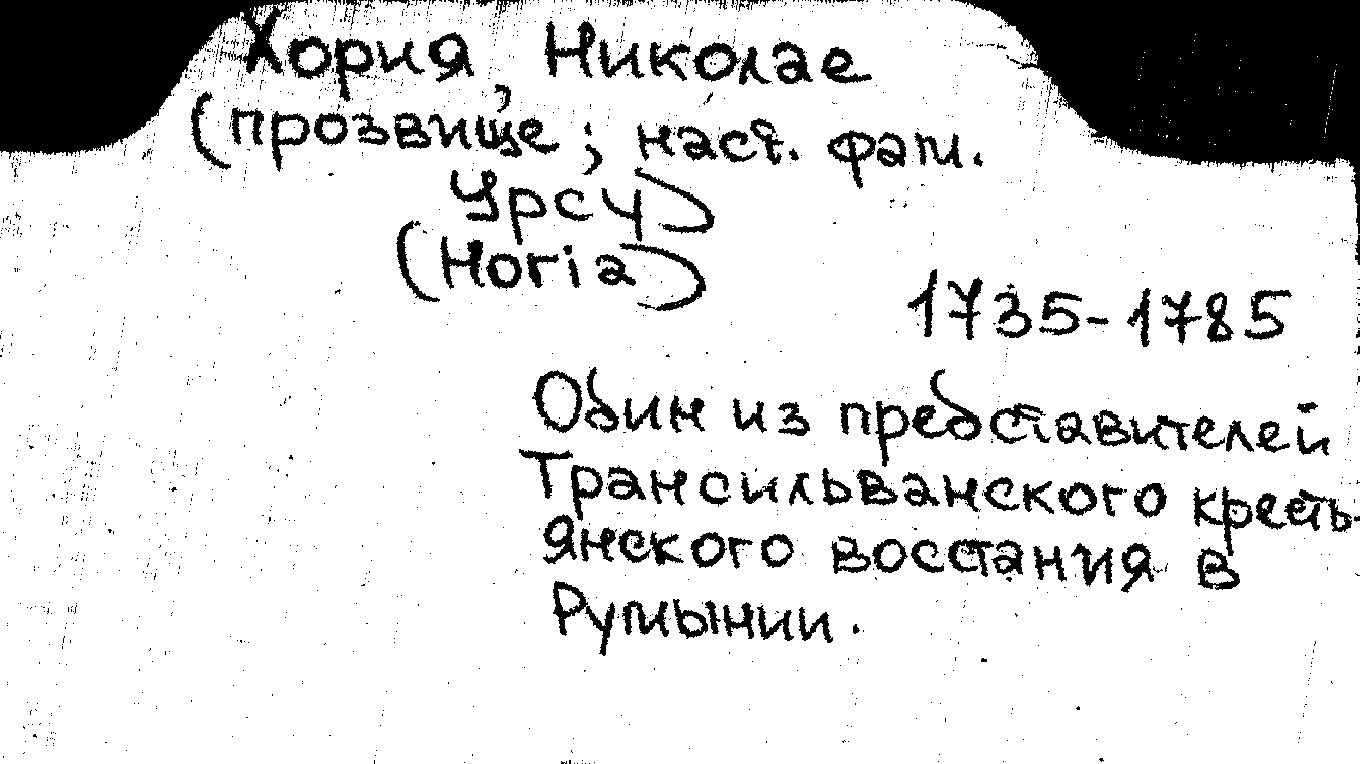 Хория, Николае
(прозвище; наст. фам.
Урсу)
(Horia)
1735-1785
Один из представителей
Трансильванского кресть-
янского восстания в
Румынии.